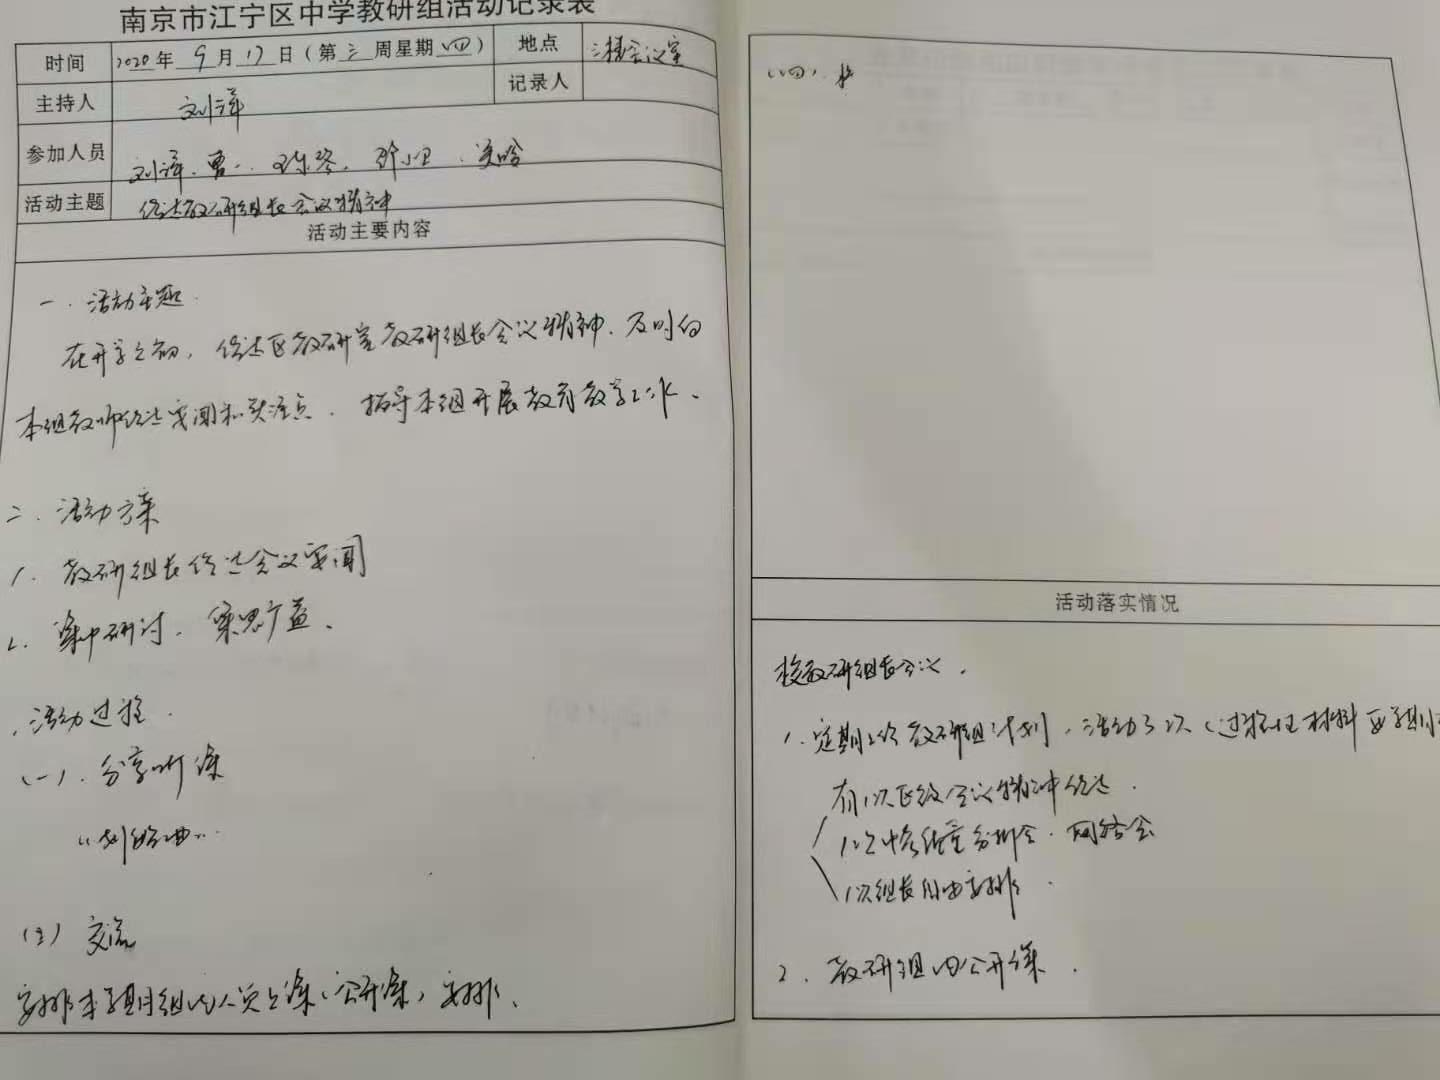 南京市江宁区中学教研组活动记录表
时间 2020年 9月17日（第三周星期四） 地点 三楼会议室
主持人 刘洋 记录人
参加人员 刘洋、曹
活动主题 传达教研组长会议精神
活动主要内容
一、活动主题
在开学之初，传达区教研室教研组长会议精神、及时向
本组教师传达要闻和关注点、指导本组开展教育教学工作、
二、活动方案
1、教研组长传达会议要闻
2、集中研讨、集思广益、
活动过程
（一）、分享听课
交流
安排本学期组内人员上课（公开课）安排、
（四）、
活动落实情况
校教研组长会议、
1、定期上传教研组计划，活动3次（过程性材料
有1次区级会议精神传达
质量分析会、网络会
1次组长自由安排
2、教研组内公开课